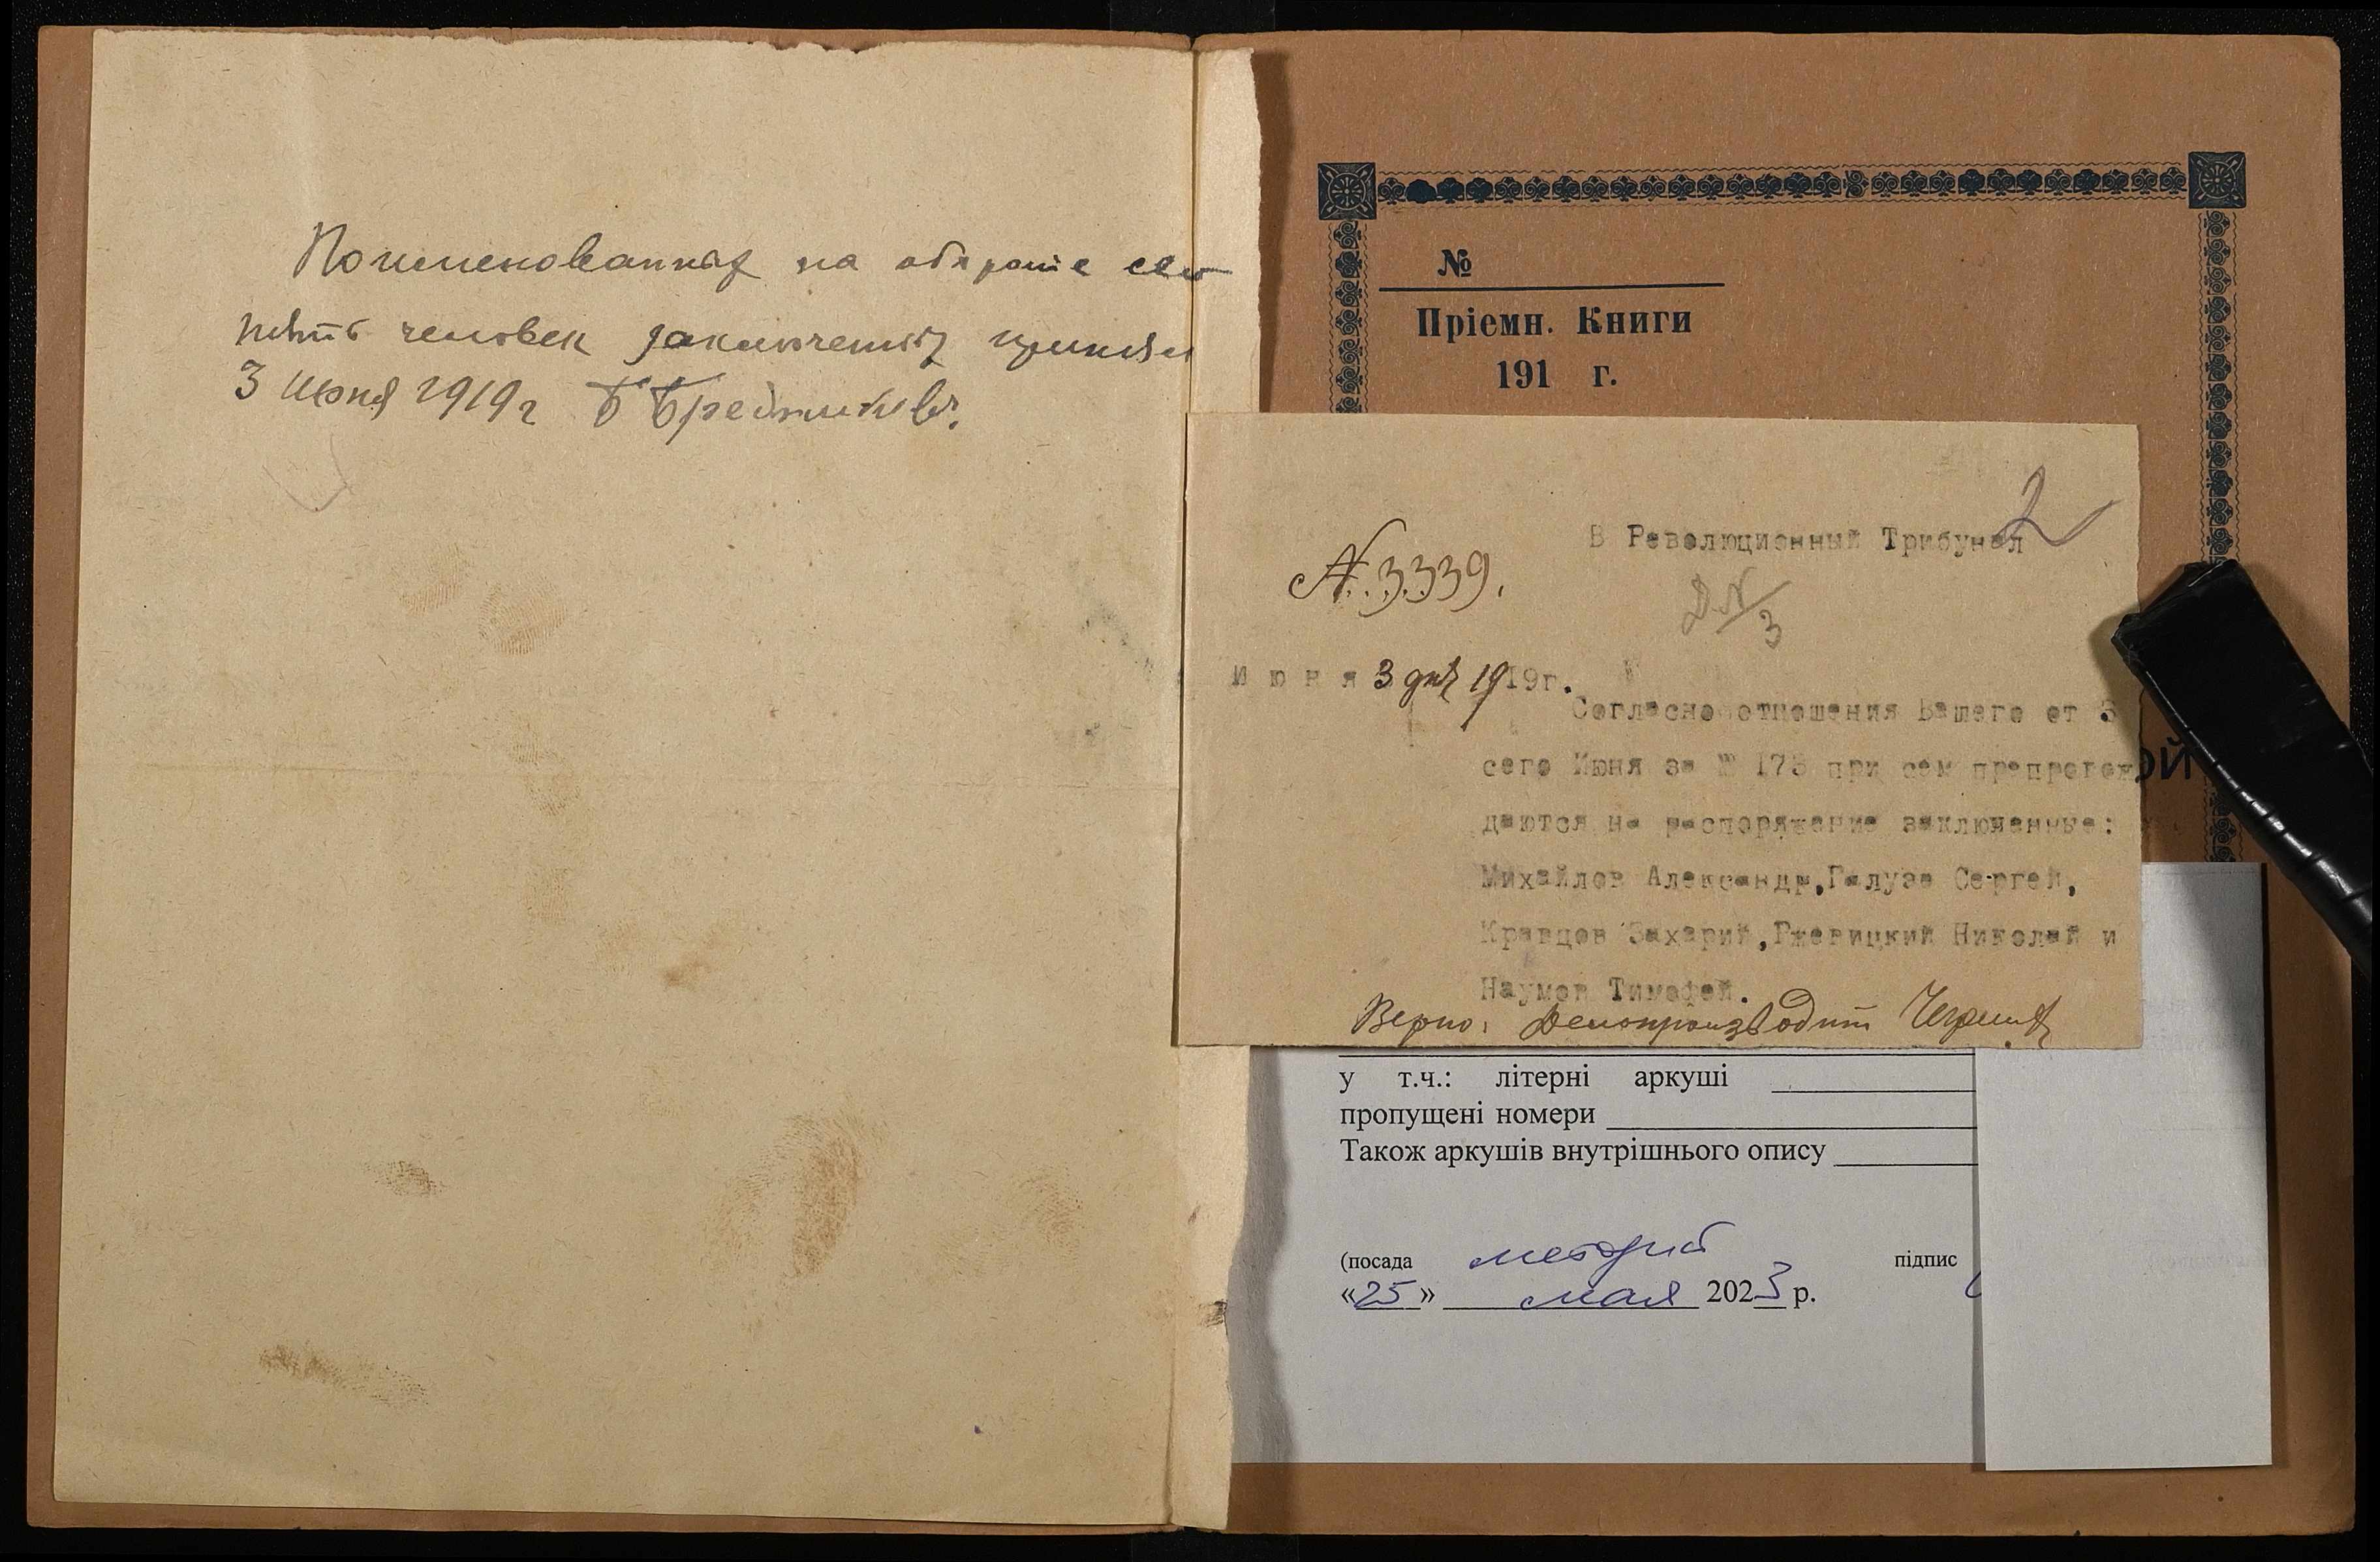 Поименованных на обороте сего
пять человек заключенных принял
3 июня 1919 г Б Бредников.
№
Пріемн. Книги
191 г.
2
В Революционный Трибунал
№ 3339.
Д. №/3
Июня 3 дня 1919г.
Согласно отношения Вашего от 3
сего Июня за № 173 при сем препровож
даются на распоряжение заключенные:
Михайлов Александр, Галуза Сергей,
Кравцов Захарий, Ржевицкий Николай и
Наумов Тимофей.
Верно: Делопроизводит
ОЙ
у т.ч.: літерні аркуші
пропущені номери
Також аркушів внутрішнього опису
(посада підпис
«25» мая 2023 р.